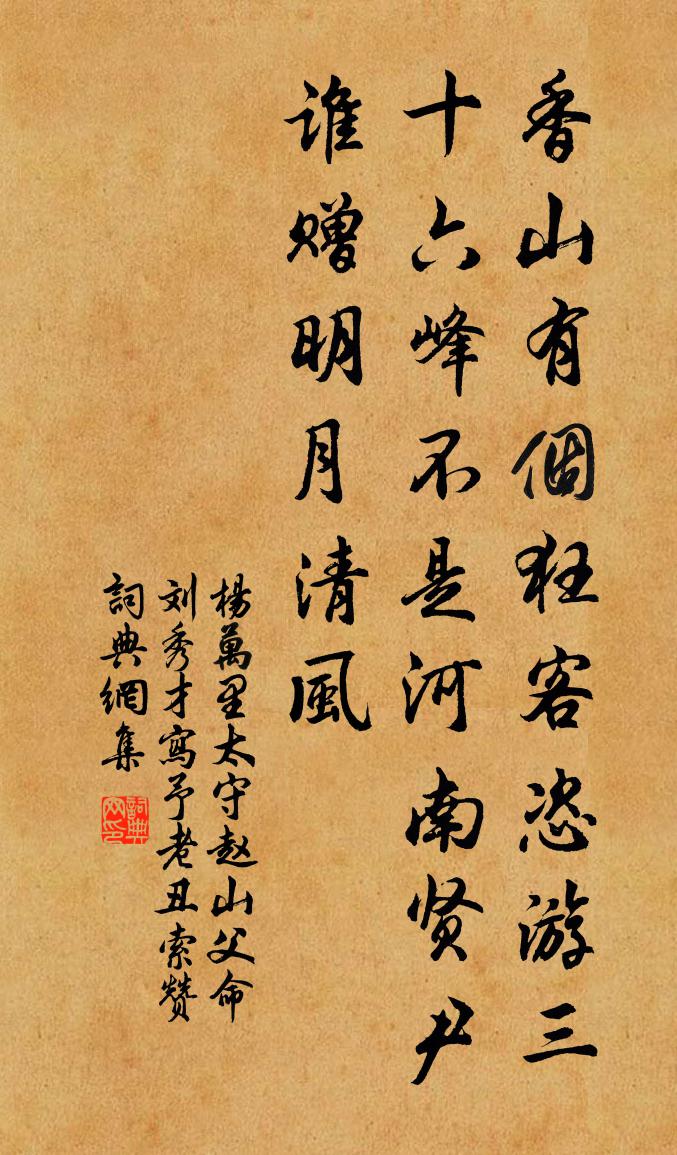 香山有個狂客恣游三
十六峰不是河南贤尹
谁赠明月清風
楊萬里太守赵山父命
刘秀才寫予老丑索赞
詞典網集
詞典網印